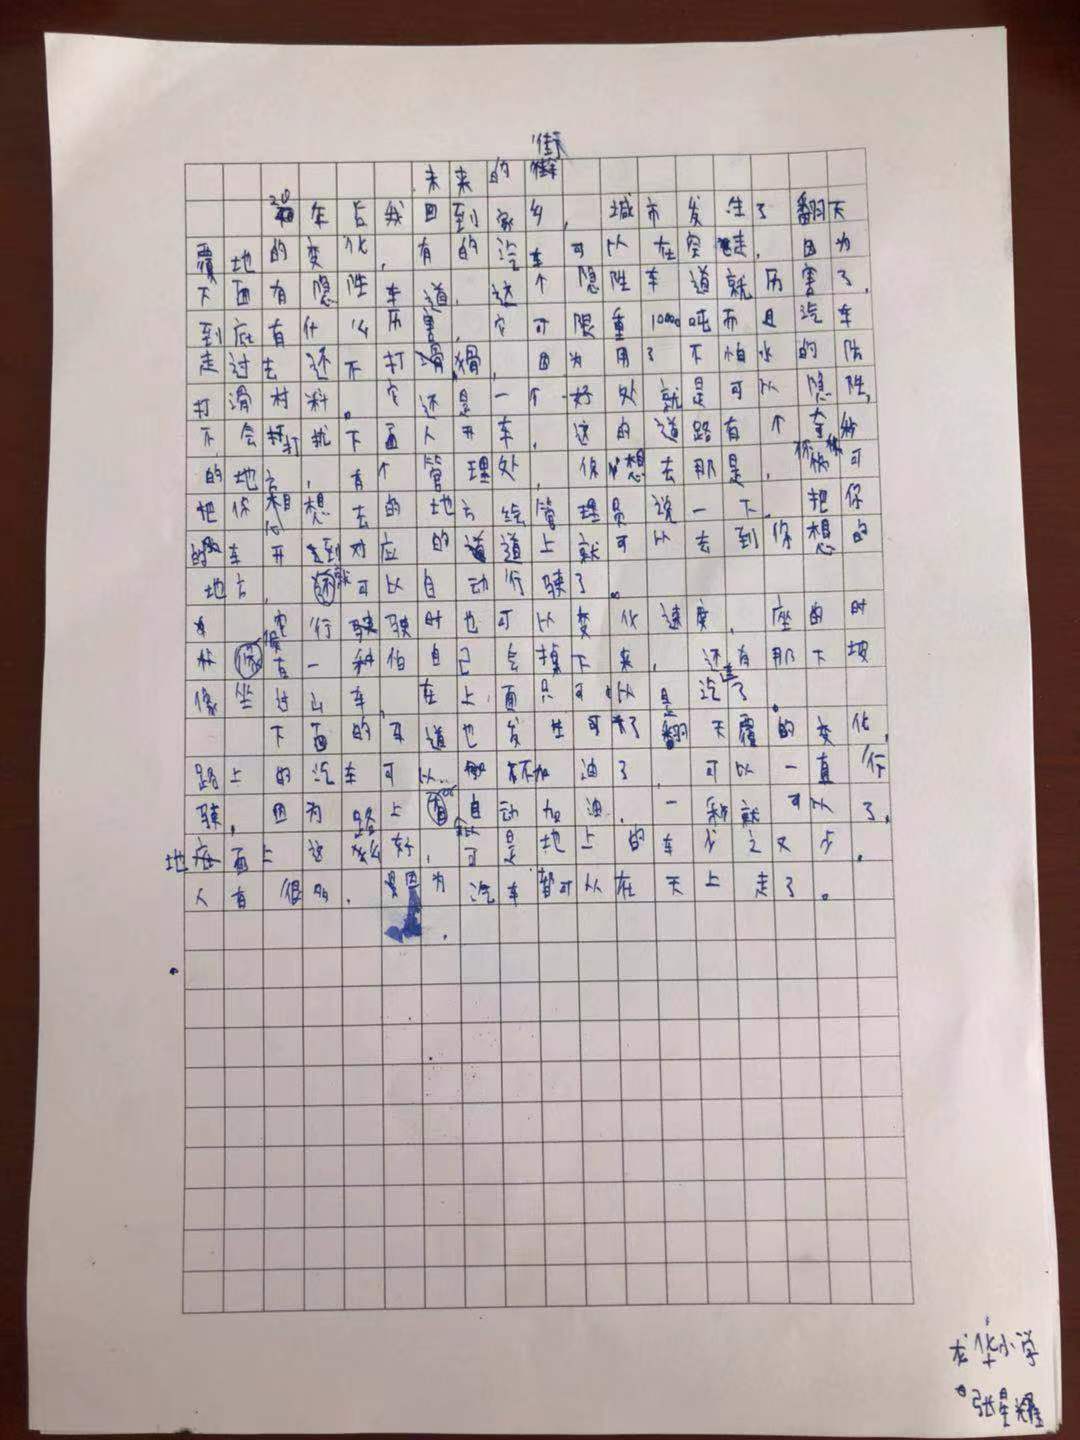 街
未来的
20年后我回到家乡，城市发生了翻天
覆地的变化，有的汽车可以在空走，因为
下面有隐性车道，这个隐性车道就历害了，
到底有什么历害，它可限重10000吨而且汽车
走过去还不打滑，因为用了不怕水的防
打滑材料。它还是一个好处就是可以隐性，
不会打扰下面人开车，这的道路有个
的地方，有个管理处，你想去那是，你可
把你想去的地方给管理员说一下，把你
的车开到对应的道上就可以去到你想的
地方，就可以自动行驶了。
它行驶时也可以变化速度，座的时
候 一种怕自己会掉下来，还有那下坡
像坐过山车，在上面只可以是汽了。
下面的车道也发生了翻天覆的变化，
路上的汽车可以不加油了，可以一直行
驶，因为路上自动加油，一秒就可以了，
地面上这么好，可是地上的车少之又少，
人有很多，因为汽车都可以在天上走了。
龙华小学
张星耀